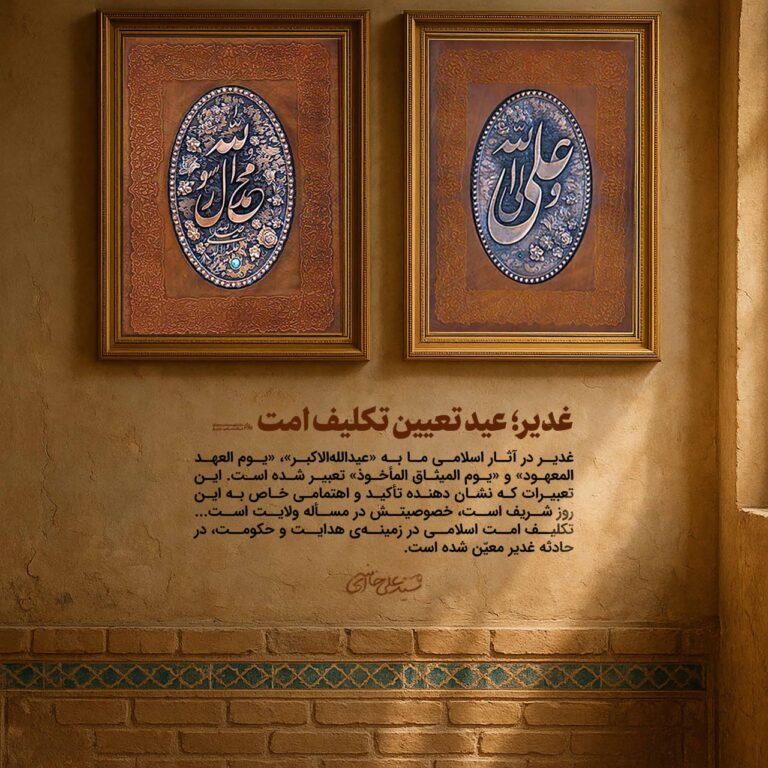 محمد رسول الله
علی ولی الله
غدیر؛ عید تعیین تکلیف امت
غدیر در آثار اسلامی ما به «عیدالله‌الاکبر»، «یـوم العهـد
المعهـود» و «یـوم المیثـاق المأخـوذ» تعبیـر شـده اسـت. این
تعبیرات کـه نشـان دهنـده تأکیـد و اهتمامـی خاص بـه این
روز شـریف اسـت، خصوصیتـش در مسـأله ولایـت اسـت...
تکلیـف امـت اسلامـی در زمینـه‌ی هدایـت و حکومـت، در
حادثه غدیر معیّن شده است.
سید علی خامنه‌ای